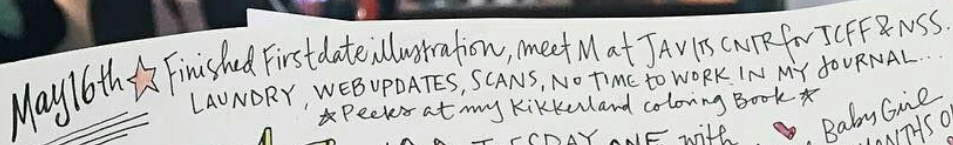 May 16th ☆ Finished First date illustration, meet M at JAVITS CNTR for ICFF & NSS.
LAUNDRY, WEB UPDATES, SCANS, NO TIME to WORK IN MY JOURNAL...
☆ Peeks at my Kikkerland coloring Book ☆
ONE with
Baby Girl